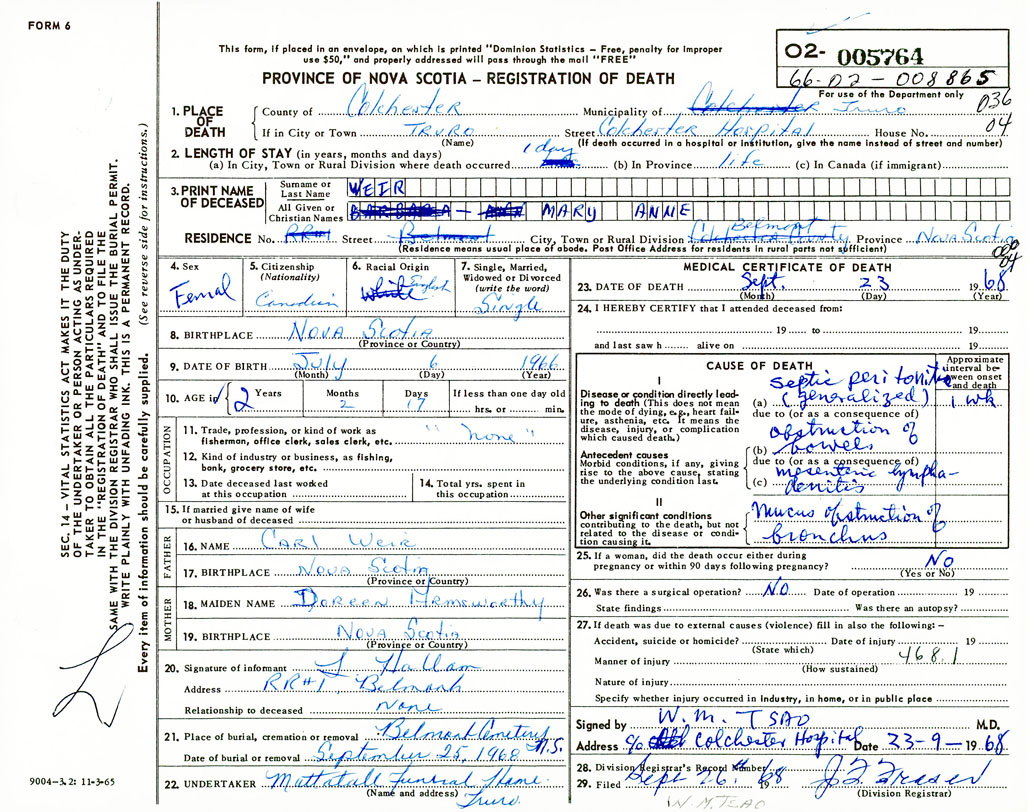 FORM 6
This form, if placed in an envelope, on which is printed "Dominion Statistics — Free, penalty for improper
use $50," and properly addressed will pass through the mail "FREE"
PROVINCE OF NOVA SCOTIA – REGISTRATION OF DEATH
02- 005764
66-02-008865
For use of the Department only
036
04
1. PLACE OF DEATH
County of Colchester Municipality of Colchester Truro
If in City or Town TRURO Street Colchester Hospital House No.
(Name) (If death occurred in a hospital or institution, give the name instead of street and number)
2. LENGTH OF STAY (in years, months and days)
(a) In City, Town or Rural Division where death occurred 1 day (b) In Province life (c) In Canada (if immigrant)
3. PRINT NAME OF DECEASED
Surname or Last Name WEIR
All Given or Christian Names BARBARA – ANN MARY ANNE
RESIDENCE No. RR#1 Street Belmont City, Town or Rural Division Colchester County Belmont Province Nova Scotia
(Residence means usual place of abode. Post Office Address for residents in rural parts not sufficient)
04
4. Sex
Femal
5. Citizenship (Nationality)
Canadian
6. Racial Origin
White English
7. Single, Married, Widowed or Divorced (write the word)
Single
8. BIRTHPLACE Nova Scotia
(Province or Country)
9. DATE OF BIRTH July 6 1966
(Month) (Day) (Year)
10. AGE in 2 Years Months 2 Days 17 If less than one day old
hrs. or min.
OCCUPATION
11. Trade, profession, or kind of work as
fisherman, office clerk, sales clerk, etc. "none"
12. Kind of industry or business, as fishing,
bonk, grocery store, etc.
13. Date deceased last worked
at this occupation
14. Total yrs. spent in
this occupation
15. If married give name of wife
or husband of deceased
FATHER
16. NAME Carl Weir
17. BIRTHPLACE Nova Scotia
(Province or Country)
MOTHER
18. MAIDEN NAME Doreen Hemsworthy
19. BIRTHPLACE Nova Scotia
(Province or Country)
20. Signature of informant L Hallam
Address RR#1, Belmont
Relationship to deceased None
21. Place of burial, cremation or removal Belmont Cemetery N.S.
Date of burial or removal September 25, 1968
22. UNDERTAKER Mattatall Funeral Home.
(Name and address) Truro.
MEDICAL CERTIFICATE OF DEATH
23. DATE OF DEATH Sept. 23 1968
(Month) (Day) (Year)
24. I HEREBY CERTIFY that I attended deceased from:
19 to 19
and last saw h alive on 19
CAUSE OF DEATH
Approximate interval between onset and death
I
Disease or condition directly leading to death (This does not mean the mode of dying, e.g., heart failure, asthenia, etc. It means the disease, injury, or complication which caused death.)
septic peritonitis
(a) (generalized) 1 wk
due to (or as a consequence of)
obstruction of
(b) bowels
due to (or as a consequence of)
Antecedent causes
Morbid conditions, if any, giving rise to the above cause, stating the underlying condition last.
mesenteric lympha-
(c) denitis
II
Other significant conditions
contributing to the death, but not related to the disease or condition causing it.
Mucus obstruction of
bronchus
25. If a woman, did the death occur either during
pregnancy or within 90 days following pregnancy? NO
(Yes or No)
26. Was there a surgical operation? NO Date of operation 19
State findings Was there an autopsy?
27. If death was due to external causes (violence) fill in also the following: –
Accident, suicide or homicide? Date of injury 19
(State which) 468.1
Manner of injury
(How sustained)
Nature of injury
Specify whether injury occurred in industry, in home, or in public place
Signed by W. M. TSAO M.D.
Address c/o Colchester Hospital Date 23-9-1968
28. Division Registrar's Record Number
29. Filed Sept 26th 1968 J. F. Fraser
(Division Registrar)
W.M. TSAO
SEC. 14 – VITAL STATISTICS ACT MAKES IT THE DUTY
OF THE UNDERTAKER OR PERSON ACTING AS UNDER-
TAKER TO OBTAIN ALL THE PARTICULARS REQUIRED
IN THE "REGISTRATION OF DEATH" AND TO FILE THE
SAME WITH THE DIVISION REGISTRAR WHO SHALL ISSUE THE BURIAL PERMIT.
WRITE PLAINLY WITH UNFADING INK. THIS IS A PERMANENT RECORD.
Every item of information should be carefully supplied. (See reverse side for instructions.)
9004–3.2: 11-3-65